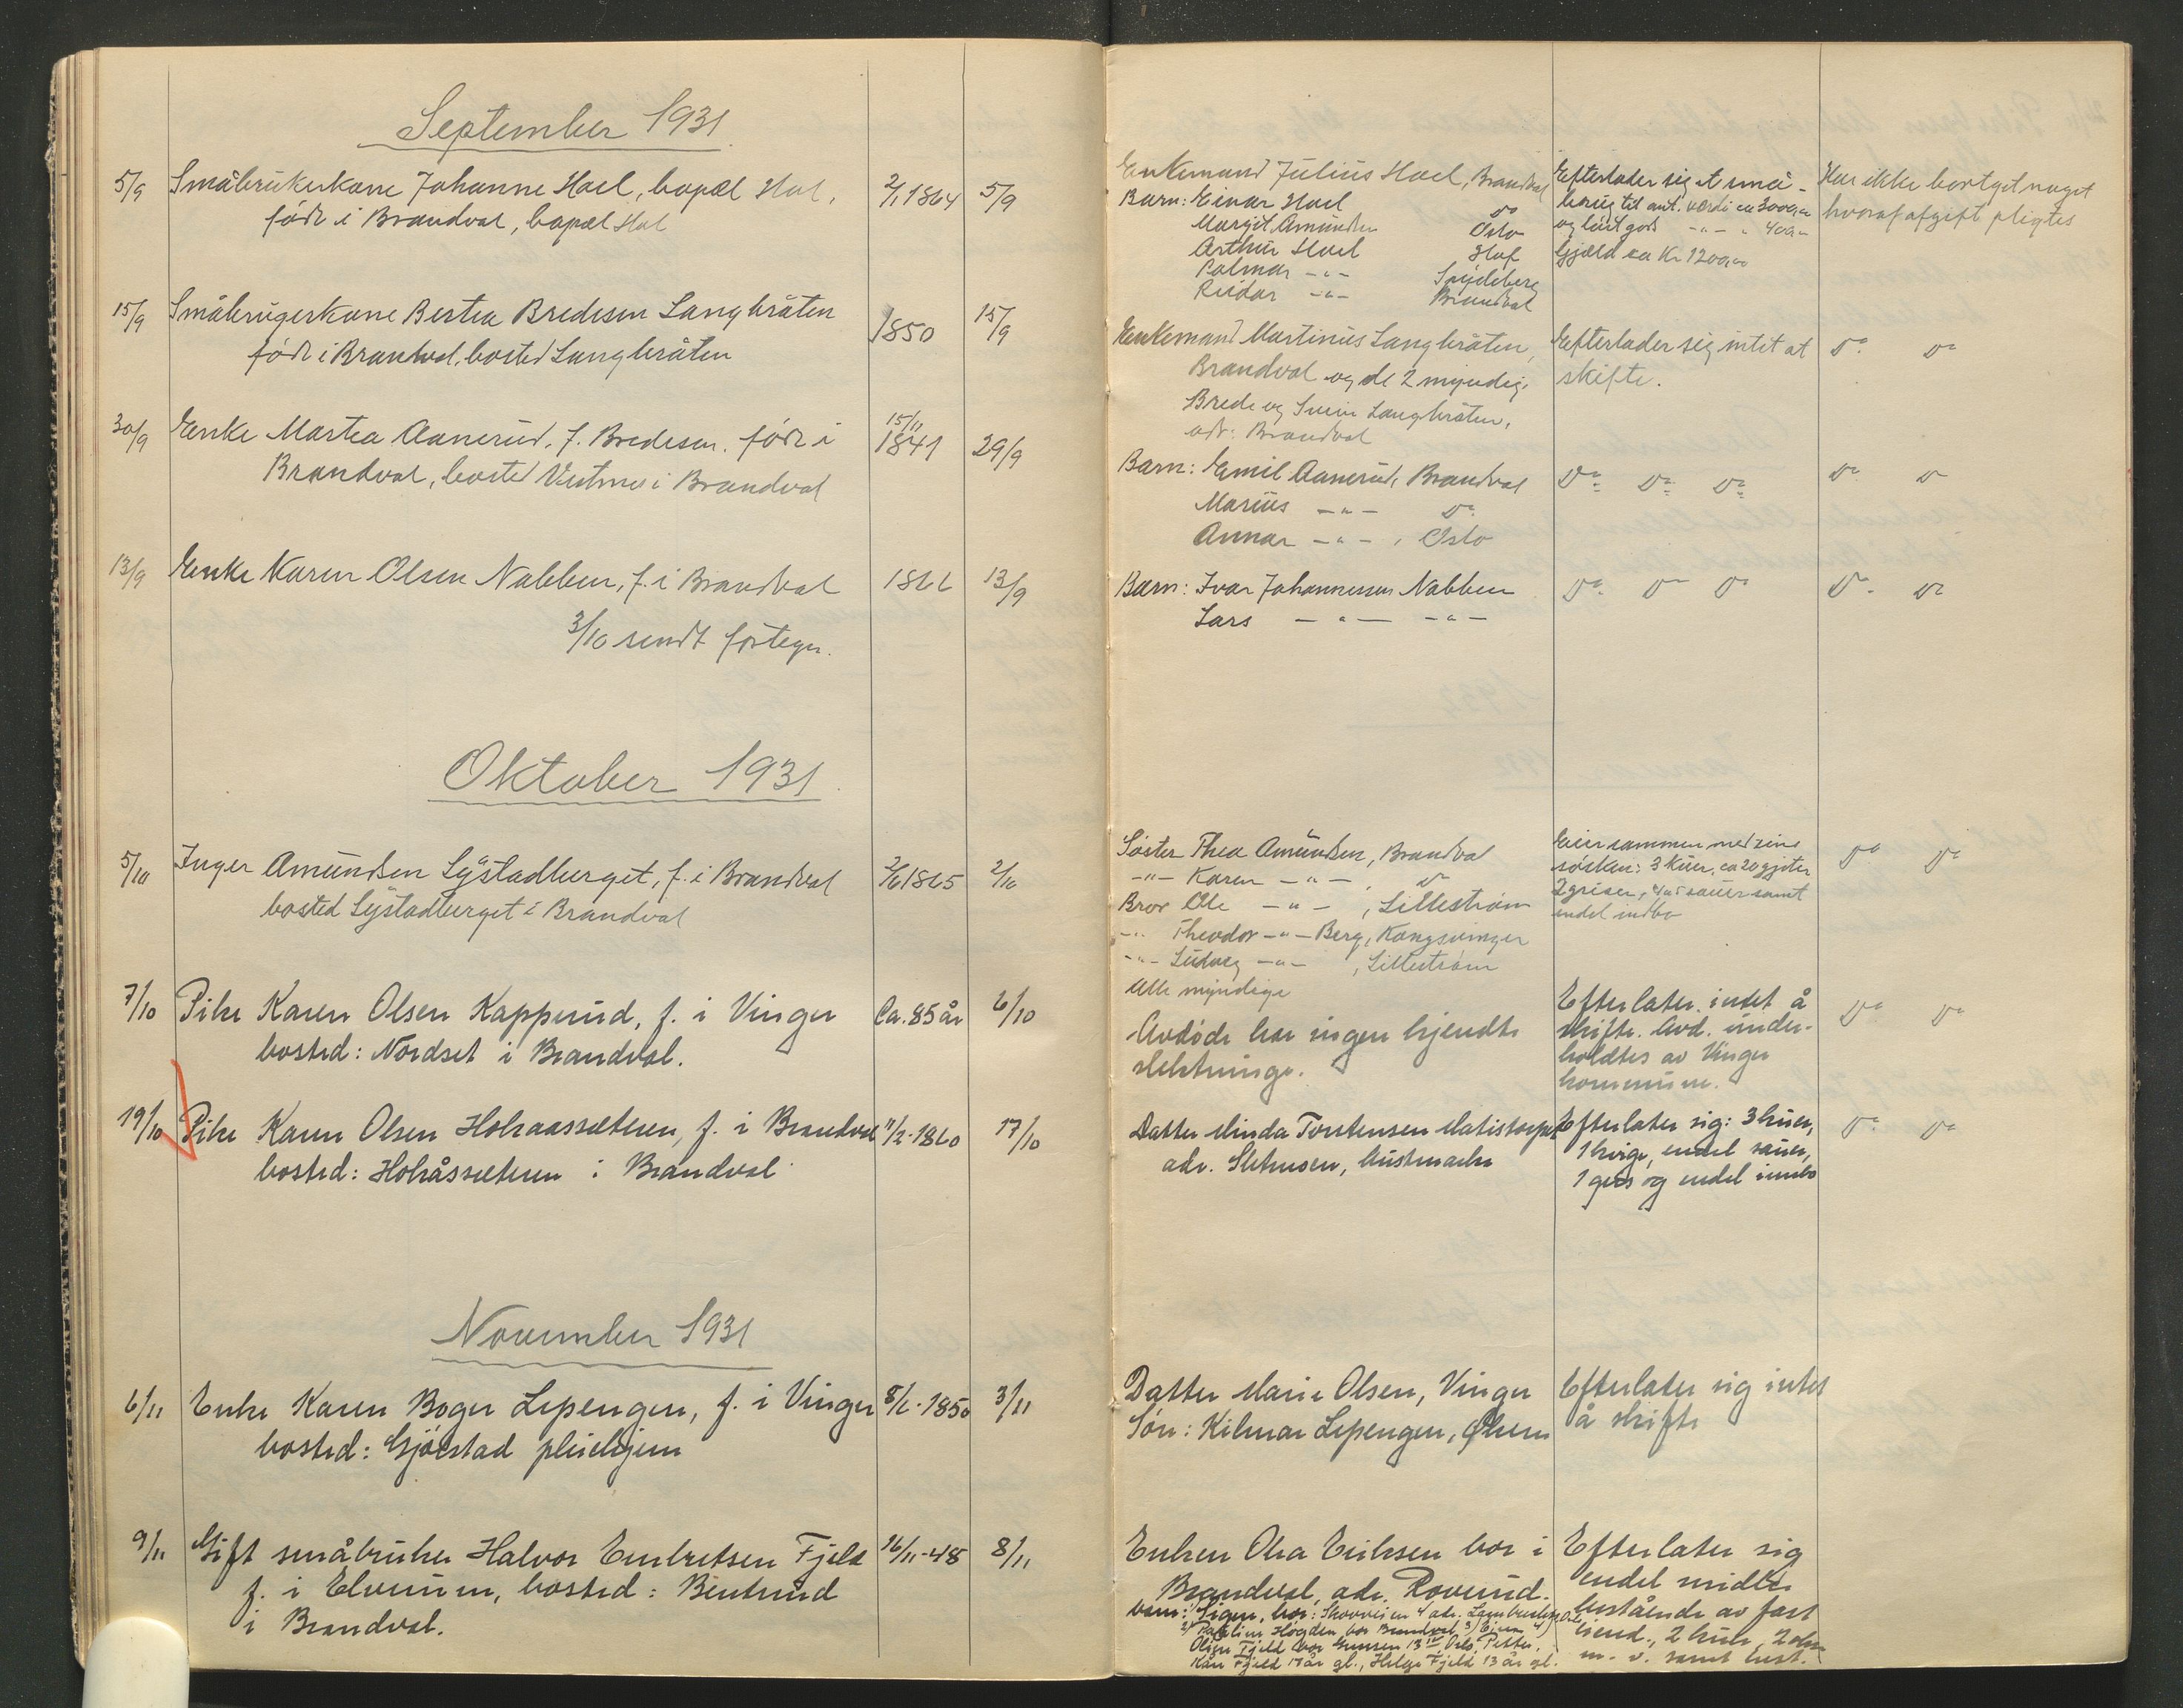 September 1931
5/9 Småbrukerkone Johanne Hoel, bopæl Hol, 2/1 1864 5/9
født i Brandval, bopæl Hol
15/9 Småbrugerkone Bertea Bredesen Langbråten 1850 15/9
født i Brandval, bosted Langbråten
30/9 Enke Martea Aanerud, f. Bredesen. født i 15/11 1841 29/9
Brandval, bosted i Brandval
13/9 Enke Karen Olsen Nabben, f. i Brandval 13/9
3/10 sendt førtegn.
Oktober 1931
5/10 Inger Amundsen Lystadberget, f. i Brandval 2/10
bosted Lystadberget i Brandval
7/10 Pike Karen Olsen Kapprud, f. i Vinger Ca. 85 år 6/10
bosted: Nordset i Brandval.
19/10 Pike Karen Olsen Hokaassæteren, f. i Brandval 11/2-1860 17/10
bosted: Hokåssæteren i Brandval
November 1931
6/11 Enke Karen Boger Lepengen, f. i Vinger 1850 3/11
bosted: Gjørstad pleiehjem
9/11 Gift småbruker Halvor Embretsen Fjeld 16/11-48 8/11
f. i Elverum, bosted:
i Brandval.
Enkemand Julius Hoel, Brandval
Barn: Einar Hoel do
Margit Amundsen Oslo
Arthur Hoel Hof
Palmar -"- Spydeberg
Reidar -"- Brandval
Enkemand Martinius Langbråten,
Brandval og de 2 myndige
Brede og Langbråten,
adr: Brandval
Barn: Emil Aanerud, Brandval
Marius -"- do
Annar -"-, Oslo
Barn: Ivar Johannessen Nabben
Lars -"- -"-
Søster Thea Amundsen, Brandval
-"- Karen -"-, do
Bror Ole -"-, Lillestrøm
-"- Theodor -"- Berg, Kongsvinger
-"- Ludvig -"-, Lillestrøm
Alle myndige
Avdøde har ingen kjendte
slektninge.
Datter Minda Torstensen Matistorpet
adr. Austmarka
Datter Marie Olsen, Vinger
Søn: Hilmar Lepengen,
Enken Olea Eriksen bor i
Brandval, adr. Roverud.
barn: Signe, bor: Skovveien 4 adr.
2) Høgden bor Brandval, 3) 4)
Fjeld bor 13 Oslo Petter.
Kåre Fjeld 17 år gl., Helge Fjeld 13 år gl.
Efterlader sig et små-
brug til ant. værdi ca 3000,00
og løst gods -"- 400,00
Gjæld ca Kr 1200,00
Efterlader sig intet at
skifte.
do do do
do do do
Eier sammen med sine
søsken: 3 kuer, ca 20 gjeter
2 griser, 4 a 5 sauer samt
endel indbo
Efterlater intet å
skifte. Avd. under-
holdtes av Vinger
kommune.
Efterlater sig: 3 kuer,
1 kvige, endel sauer,
1 gris og endel innbo
Efterlater sig intet
å skifte
Efterlater sig
endel midler
bestående av fast
eiend., 2 kuer,
m. v. samt
Har ikke bortgit noget
hvoraf afgift pligtes
do do
do do
do do
do do
do do
do do